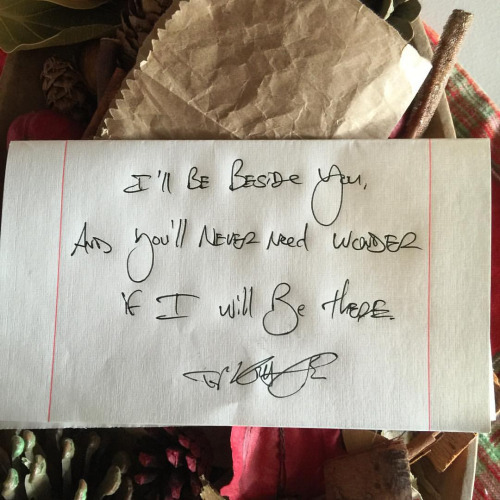 I'll Be Beside you,
And you'll Never Need Wonder
If I will Be there.